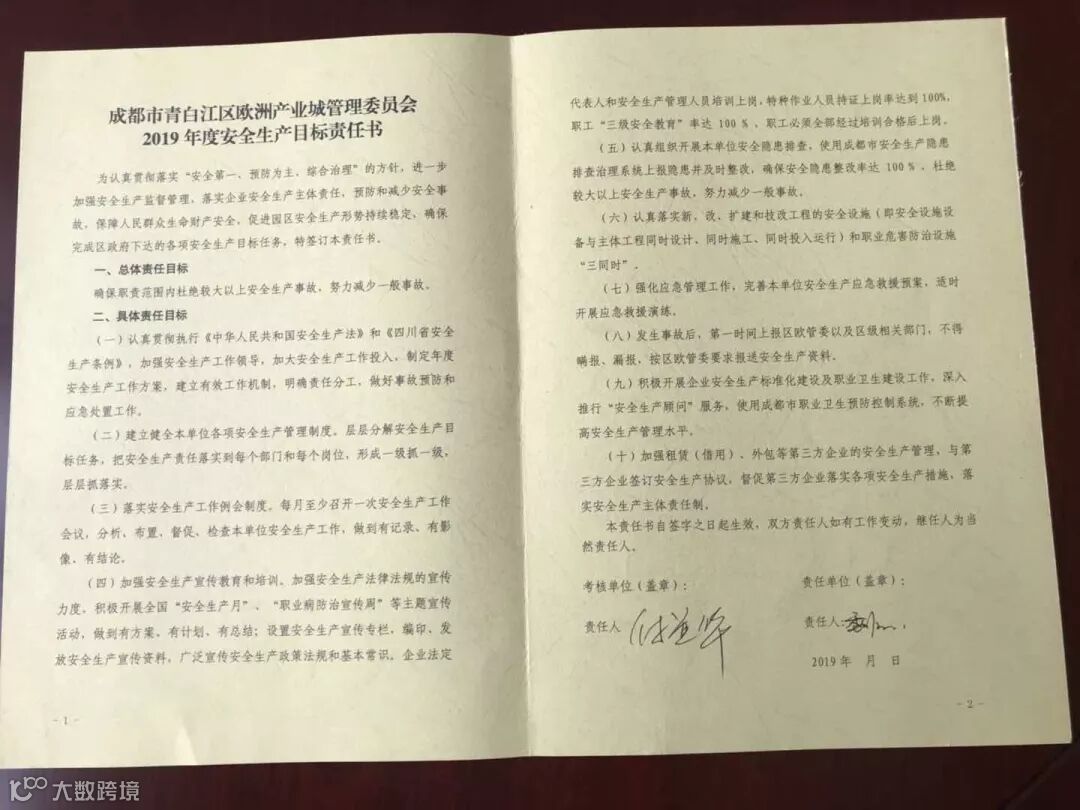 成都市青白江区欧洲产业城管理委员会
2019 年度安全生产目标责任书
为认真贯彻落实“安全第一、预防为主、综合治理”的方针，进一步
加强安全生产监督管理，落实企业安全生产主体责任，预防和减少安全事
故，保障人民群众生命财产安全，促进园区安全生产形势持续稳定，确保
完成区政府下达的各项安全生产目标任务，特签订本责任书。
一、总体责任目标
确保职责范围内杜绝较大以上安全生产事故，努力减少一般事故。
二、具体责任目标
（一）认真贯彻执行《中华人民共和国安全生产法》和《四川省安全
生产条例》，加强安全生产工作领导，加大安全生产工作投入，制定年度
安全生产工作方案，建立有效工作机制，明确责任分工，做好事故预防和
应急处置工作。
（二）建立健全本单位各项安全生产管理制度。层层分解安全生产目
标任务，把安全生产责任落实到每个部门和每个岗位，形成一级抓一级，
层层抓落实。
（三）落实安全生产工作例会制度。每月至少召开一次安全生产工作
会议，分析、布置、督促、检查本单位安全生产工作，做到有记录、有影
像、有结论。
（四）加强安全生产宣传教育和培训。加强安全生产法律法规的宣传
力度。积极开展全国“安全生产月”、“职业病防治宣传周”等主题宣传
活动，做到有方案、有计划、有总结；设置安全生产宣传专栏，编印、发
放安全生产宣传资料，广泛宣传安全生产政策法规和基本常识。企业法定
- 1 -
代表人和安全生产管理人员培训上岗，特种作业人员持证上岗率达到100%，
职工“三级安全教育”率达 100 %、职工必须全部经过培训合格后上岗。
（五）认真组织开展本单位安全隐患排查，使用成都市安全生产隐患
排查治理系统上报隐患并及时整改，确保安全隐患整改率达 100 %，杜绝
较大以上安全生产事故，努力减少一般事故。
（六）认真落实新、改、扩建和技改工程的安全设施（即安全设施设
备与主体工程同时设计、同时施工、同时投入运行）和职业危害防治设施
“三同时”。
（七）强化应急管理工作，完善本单位安全生产应急救援预案，适时
开展应急救援演练。
（八）发生事故后，第一时间上报区欧管委以及区级相关部门，不得
瞒报、漏报，按区欧管委要求报送安全生产资料。
（九）积极开展企业安全生产标准化建设及职业卫生建设工作，深入
推行“安全生产顾问”服务，使用成都市职业卫生预防控制系统，不断提
高安全生产管理水平。
（十）加强租赁（借用）、外包等第三方企业的安全生产管理，与第
三方企业签订安全生产协议，督促第三方企业落实各项安全生产措施，落
实安全生产主体责任制。
本责任书自签字之日起生效，双方责任人如有工作变动，继任人为当
然责任人。
考核单位（盖章）：
责任单位（盖章）：
责任人
责任人：
2019 年 月 日
- 2 -
大数跨境